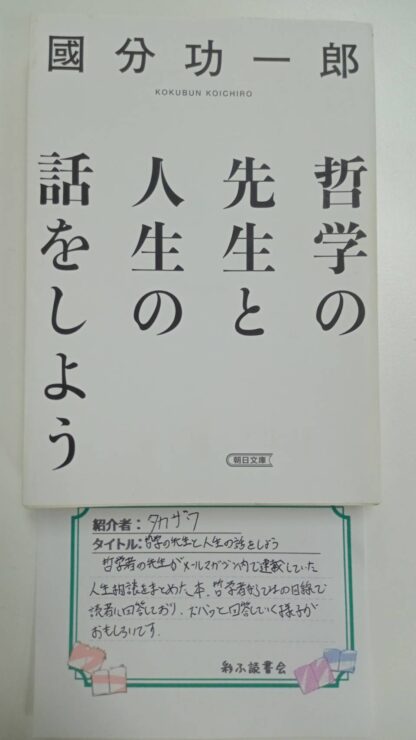 國分功一郎
KOKUBUN KOICHIRO
哲学の
先生と
人生の
話をしよう
朝日文庫
紹介者：タカザワ
タイトル：哲学の先生と人生の話をしよう
哲学者の先生がメールマガジン内で連載していた
人生相談をまとめた本。哲学者ならではの目線で
読者に回答しており、ズバッと回答していく様子が
おもしろいです。
彩ふ読書会